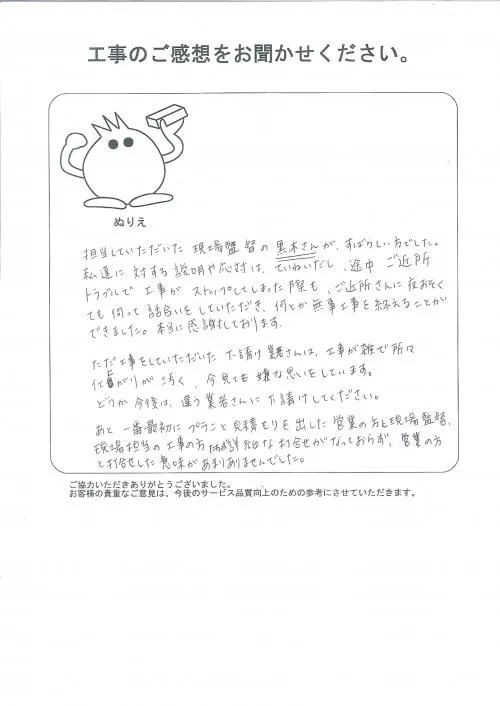 工事のご感想をお聞かせください。
ぬりえ
担当していただいた現場監督の黒木さんが、すばらしい方でした。
私達に対する説明や応対は、ていねいだし、途中ご近所
トラブルで工事がストップしてしまった際も、ご近所さんに夜おそく
ても伺って話合いをしていただき、何とか無事工事を終えることが
できました。本当に感謝しております。
ただ工事をしていただいた下請け業者さんは、工事が雑で所々
仕上がりが汚く、今見ても嫌な思いをしています。
どうか今後は、違う業者さんに下請けしてください。
あと一番最初にプランと見積もりを出した営業の方と現場監督、
現場担当の工事の方の詳細な打合せがなっておらず、営業の方
と打合せした意味があまりありませんでした。
ご協力いただきありがとうございました。
お客様の貴重なご意見は、今後のサービス品質向上のための参考にさせていただきます。